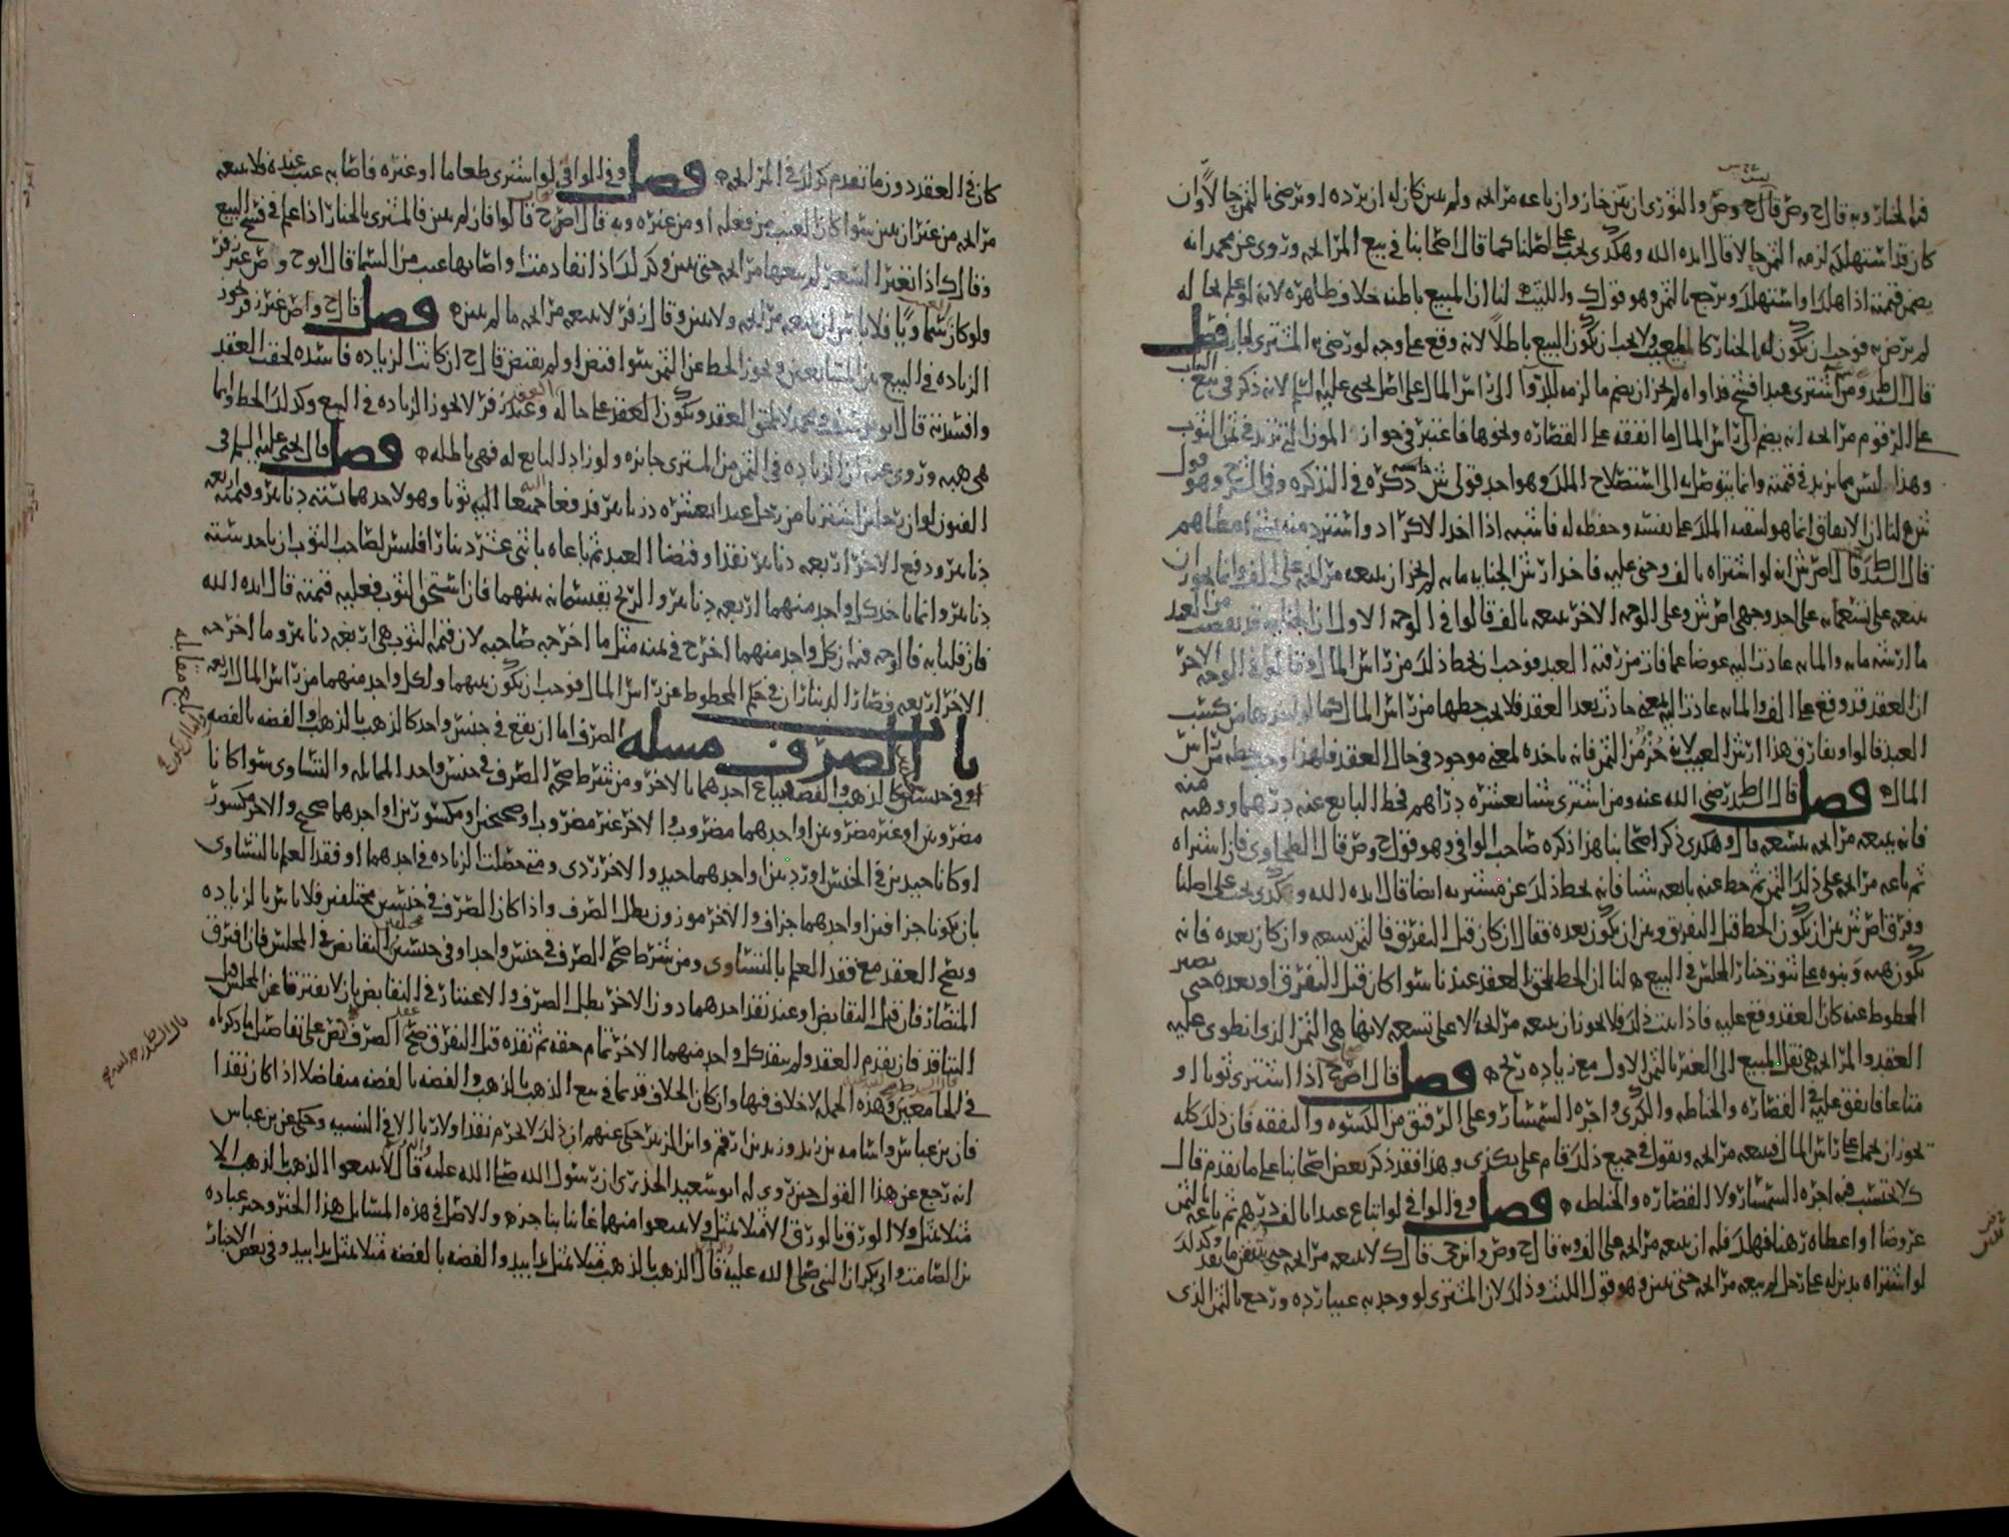 فله الخيار وبه قال ح وص قال ح وص والثوري ان بين جاز وان باعه مرابحه ولم يبين كان له ان يرده او يرضى بالثمن حالا وان
كان قد استهلكه لزمه الثمن حالا قال ايده الله وهكذى يجب على اصلنا كما قال اصحابنا في بيع المرابحه وروى عن محمد انه
يضمن قيمته اذا هلك او استهلك ويرجع بالثمن وهو قول ك والليث لنا ان المبيع باطنه خلاف ظاهره لانه لو علم بحاله
لم يرض به فوجب ان يكون له الخيار كالمعيب ولا يجب ان يكون البيع باطلا لانه وقع على وجه لو رضي به المشتري لجاز فصل
قال السيد ط ومن اشترى عبدا فشج فداواه لم يجز ان يضم ما لزمه للدوا الى راس المال على اصل يحيى عليه السلم لانه ذكر في بيع
على الرقوم مرابحه انه يضم الى راس المال ما انفقه على القصاره ونحوها فاعتبر في جواز المؤن التي تزيد في ثمن الثوب
وهذا ليس مما يزيد في قيمته وانما يتوصل به الى استصلاح الملك وهو احد قولي ش ذكره في التذكره وفي الشرح وهو قول
شرع لنا ان الانفاق انما هو لتبقيه الملك على نفسه وحفظه له فاشبه اذا
قال السيد ط قال اص ش انه لو اشتراه بالف وجني عليه فاخذ ارش الجنايه مايه لم يجز ان يبيعه مرابحه على الالف وانما يجوز ان
يبيعه على تسعمايه على احد وجهي اص ش وعلى الوجه الاخر يبيعه بالف قالوا في الوجه الاول ان الجنايه قد نقصت من العبد
ما ارشه مايه والمايه عادت اليه عوضا عما فات من رقبه العبد فوجب ان يحط ذلك من راس المال وقالوا في الوجه الاخر
ان العقد قد وقع على الالف والمايه عادت اليه لمعنى حادث بعد العقد فلا يجب حطها من راس المال كما لو استفادها من كسب
العبد قالوا ويفارق هذا ارش العيب لانه جزء من الثمن فانه ياخذه لمعنى موجود في حال العقد فلهذا وجب حطه من راس
المال ۵ فصل قال السيد ط رضي الله عنه ومن اشترى شيا بعشره دراهم فحط البايع عنه درهما ووهبه منه
فانه يبيعه مرابحه بتسعه قال وهكذى ذكر اصحابنا هذا ذكره صاحب الوافي وهو قول ح وص قال الطحاوي فان اشتراه
ثم باعه مرابحه على ذلك الثمن ثم حط عنه بايعه شيا فانه يحط ذلك عن مشتريه ايضا قال ايده الله وهكذى يجب على اصلنا
وفرق اص ش بين ان يكون الحط قبل التفريق وبين ان يكون بعده فقال ان كان قبل التفريق فالثمن يسعه وان كان بعده فانه
يكون هبه وبنوه على ثبوت خيار المجلس في البيع ۵ لنا ان الحط يلحق العقد عندنا سوا كان قبل التفرق او بعده حتى يصير
المحطوط عنه كان العقد وقع عليه فاذا ثبت ذلك فلا يجوز ان يبيعه مرابحه الا على تسعه لانها هي الثمن الذي انطوى عليه
العقد والمرابحه هي نقل المبيع الى الغير بالثمن الاول مع زياده ربح ۵ فصل قال اص ح اذا اشترى ثوبا او
متاعا فانفق عليه في القصاره والخياطه والكرى واجره السمسار وعلى الرقيق من الكسوه والنفقه فان ذلك كله
يجوز ان يحمل على راس المال فيبيعه مرابحه ويقول في جميع ذلك قام علي بكذى وهذا فقد ذكر بعض اصحابنا على ما تقدم قال
ك لا يحتسب فيه اجره السمسار ولا القصاره والخياطه ۵ فصل وفي الوافي لو ابتاع عبدا بالف درهم ثم باعه بالثمن
عروضا او اعطاه رهنا فهلك فله ان يبيعه مرابحه على الف وبه قال ح وص وابو حي قال ك لا يبيعه مرابحه حتى يبين ما نقد وكذلك
لو اشتراه بدين له على رجل لم يبعه مرابحه حتى يبين وهو قول الليث وذلك لان المشتري لو وجد به عيبا رده ورجع بالثمن الذي
كان في العقد دون ما تقدم كذلك في المرابحه ۵ فصل وفي الوافي لو اشترى طعاما او غيره فاصابه عيب عنده فلا يبيعه
مرابحه من غير ان يبين سوا كان العيب من فعله او من غيره وبه قال اص ح قالوا فان لم يبين فالمشتري بالخيار اذا علم في فسخ البيع
وقال ك اذا تغير السعر لم يبعها مرابحه حتى يبين وكذلك اذا تقادم مثنا واصابها عيب من السما قال ابو ح وص غير زفر
ولو كان سماويا فلا باس ان يبيعه مرابحه ولا يبين وقال زفر لا يبيعه مرابحه ما لم يبين ۵ فصل قال ح واص غير زفر يجوز
الزياده في البيع بين المتبايعين ويجوز الحط عن الثمن سوا قبض او لم يقبض قال ح ان كانت الزياده فاسده لحقت العقد
وافسدته قال ابو يوسف ومحمد لا يلحق العقد ويكون العقد على حاله وعند زفر لا يجوز الزياده في البيع وكذلك الحط وانما
هي هبه وروى عنه ان الزياده في الثمن من المشتري جايزه ولو زاد البايع له فهي باطله ۵ فصل قال يحيى عليه السلم في
الفنون لو ان رجلين اشتريا من رجل عبدا بعشره دنانير فدفعا جميعا اليه ثوبا وهو لاحدهما بسته دنانير وقيمته اربعه
دنانير ودفع الاخر اربعه دنانير نقدا وقبضا العبد ثم باعاه باثني عشر دينارا فليس لصاحب الثوب ان ياخذ سته
دنانير وانما ياخذ كل واحد منهما اربعه دنانير والربح يقتسمانه بينهما فان استحق الثوب فعليه قيمته قال ايده الله
فان قلنا به فالوجه فيه ان كل واحد منهما اخرج في ثمنه مثل ما اخرجه صاحبه لان قيمه الثوب هي اربعه دنانير وما اخرجه
الاخر اربعه فصار الديناران في حكم المحطوط عن راس المال فوجب ان يكون بينهما ولكل واحد منهما من راس المال اربعه
باب الصرف مسله الصرف اما ان يقع في جنس واحد كالذهب بالذهب والفضه بالفضه
او في جنسين كالذهب والفضه يباع احدهما بالاخر ومن شرط صحه الصرف في جنس واحد المماثله والتساوي سوا كانا
مضروبين او غير مضروبين او احدهما مضروب والاخر غير مضروب او صحيحين او مكسورين او احدهما صحيح والاخر مكسور
او كانا جيدين في الجنس او رديين او احدهما جيد والاخر ردي ومتى حصلت الزياده في احدهما او فقد العلم بالتساوي
بان يكونا جزافين او احدهما جزاف والاخر موزون بطل الصرف واذا كان الصرف في جنسين مختلفين فلا باس بالزياده
ويصح العقد مع فقد العلم بالتساوي ومن شرط صحه الصرف في جنس واحد او في جنسين التقابض في المجلس فان افترق
المتصارفان قبل التقابض او عند نقد احدهما دون الاخر بطل الصرف والاعتبار في التقابض بان لا يفترقا عن المجلس قبل
التناقد فان تقدم العقد ولم ينقد كل واحد منهما الاخر تمام حقه ثم نقده قبل التفرق صح عقد الصرف نص على تفاصيل ما ذكرناه
في الجامعين وهذه الجمله لا خلاف فيها وان كان الخلاف قديما في بيع الذهب بالذهب والفضه بالفضه متفاضلا اذا كان نقدا
فان بن عباس واسامه بن زيد وزيد بن ارقم وابن الزبير حكي عنهم ان ذلك لا يحرم نقدا ولا ربا الا في النسيه وحكي عن بن عباس
انه رجع عن هذا القول حين روى له ابو سعيد الخدري ان رسول الله صلى الله عليه قال لا تبيعوا الذهب بالذهب الا
مثلا بمثل ولا الورق بالورق الا مثلا بمثل ولا تبيعوا منها غايبا بناجز ۵ والاصل في هذه المسايل هذا الخبر وخبر عباده
بن الصامت وابي بكر ان النبي صلى الله عليه قال الذهب بالذهب مثلا بمثل يدا بيد والفضه بالفضه مثلا بمثل يدا بيد وفي بعض الاخبار